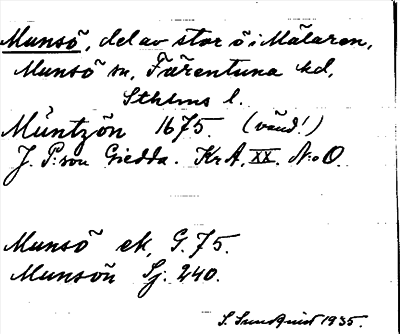 Munsö, del av stor ö i Mälaren,
Munsö sn, Färentuna hd,
Sthlms l.
Müntzön 1675. (vänd!)
J. P:son Giedda. KrA, XX. N:o 0.
Munsö ek, G. 75.
Munsön Sj. 240.
S. Sundquist 1935.